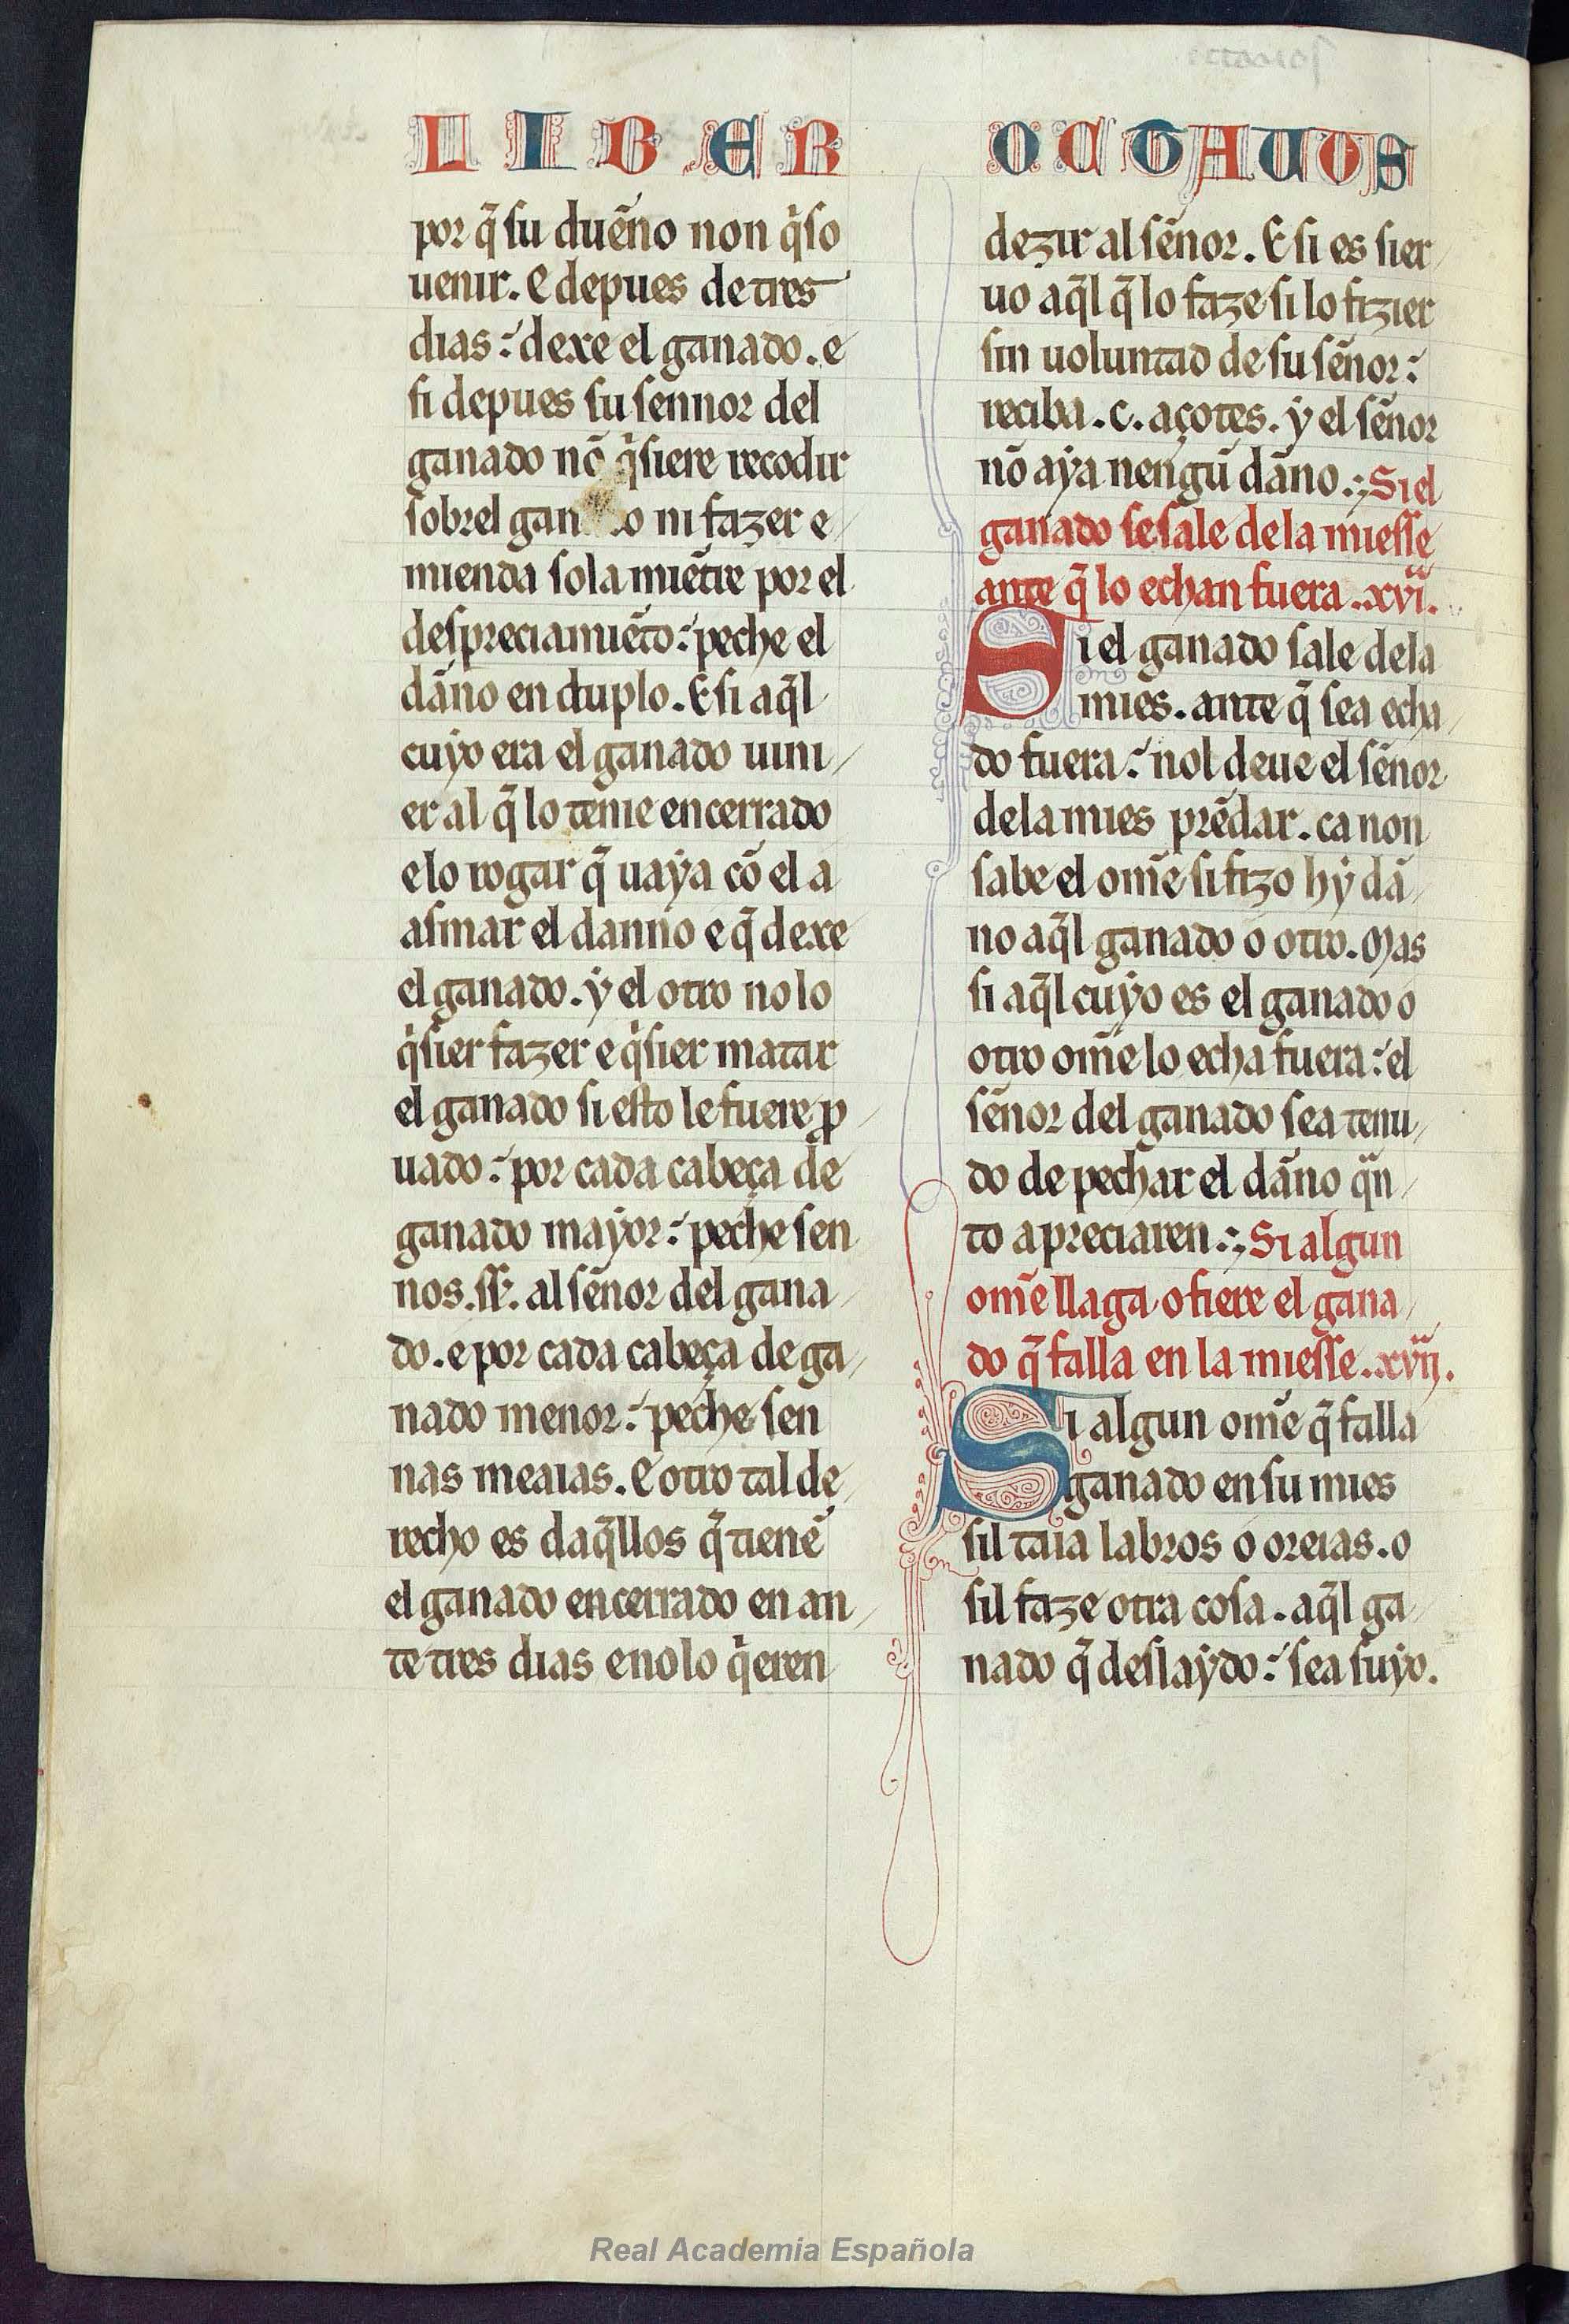 LIBER
OCTAUUS
por q̃ su duẽno non q̉so
uenir. E depues de tres
dias: dexe el ganado. e
si depues su sennor del
ganado nõ q̉siere recodir
sobrel gan o ni fazer e
mienda sola miẽtre por el
despreciamiẽto: peche el
dãno en duplo. E si aq̃l
cuyo era el ganado uini
er al q̃ lo tenie encerrado
e lo rogar q̃ uaẏa cõ el a
asmar el danno e q̃ dexe
el ganado. ẏ el otro no lo
q̉sier fazer e q̉sier matar
el ganado si esto le fuere ꝓ
uado: por cada cabeça de
ganado mayor: peche sen
nos .ss̃. al sẽnor del gana
do. e por cada cabeça de ga
nado menor: peche sen
nas meaias. E otro tal de
recho es daq̃llos q̃ tienẽ
el ganado encerrado en an
te tres dias e no lo q̉eren
dezir al sẽnor. E si es sier
uo aq̃l q̃ lo faze si lo fizier
sin uoluntad de su sẽnor:
reciba .c. açotes. ẏ el sẽnor
nõ aẏa nengũ dãno. Si el
ganado se sale de la miesse
ante q̃ lo echan fuera .xvi.
Si el ganado sale de la
mies. ante q̃ sea echa
do fuera: nol deue el sẽnor
de la mies prẽdar. ca non
sabe el om̃e si fizo hẏ dã
no aq̃l ganado o otro. Mas
si aq̃l cuyo es el ganado o
otro om̃e lo echa fuera: el
sẽnor del ganado sea tenu
do de pechar el dãno q̃n
to apreciaren. Si algun
om̃e llaga o fiere el gana
do q̃ falla en la miesse .xvij.
Si algun om̃e q̃ falla
ganado en su mies
sil taia labros o oreias. o
sil faze otra cosa. aq̃l ga
nado q̃ deslaẏdo: sea suẏo.
Real Academia Española